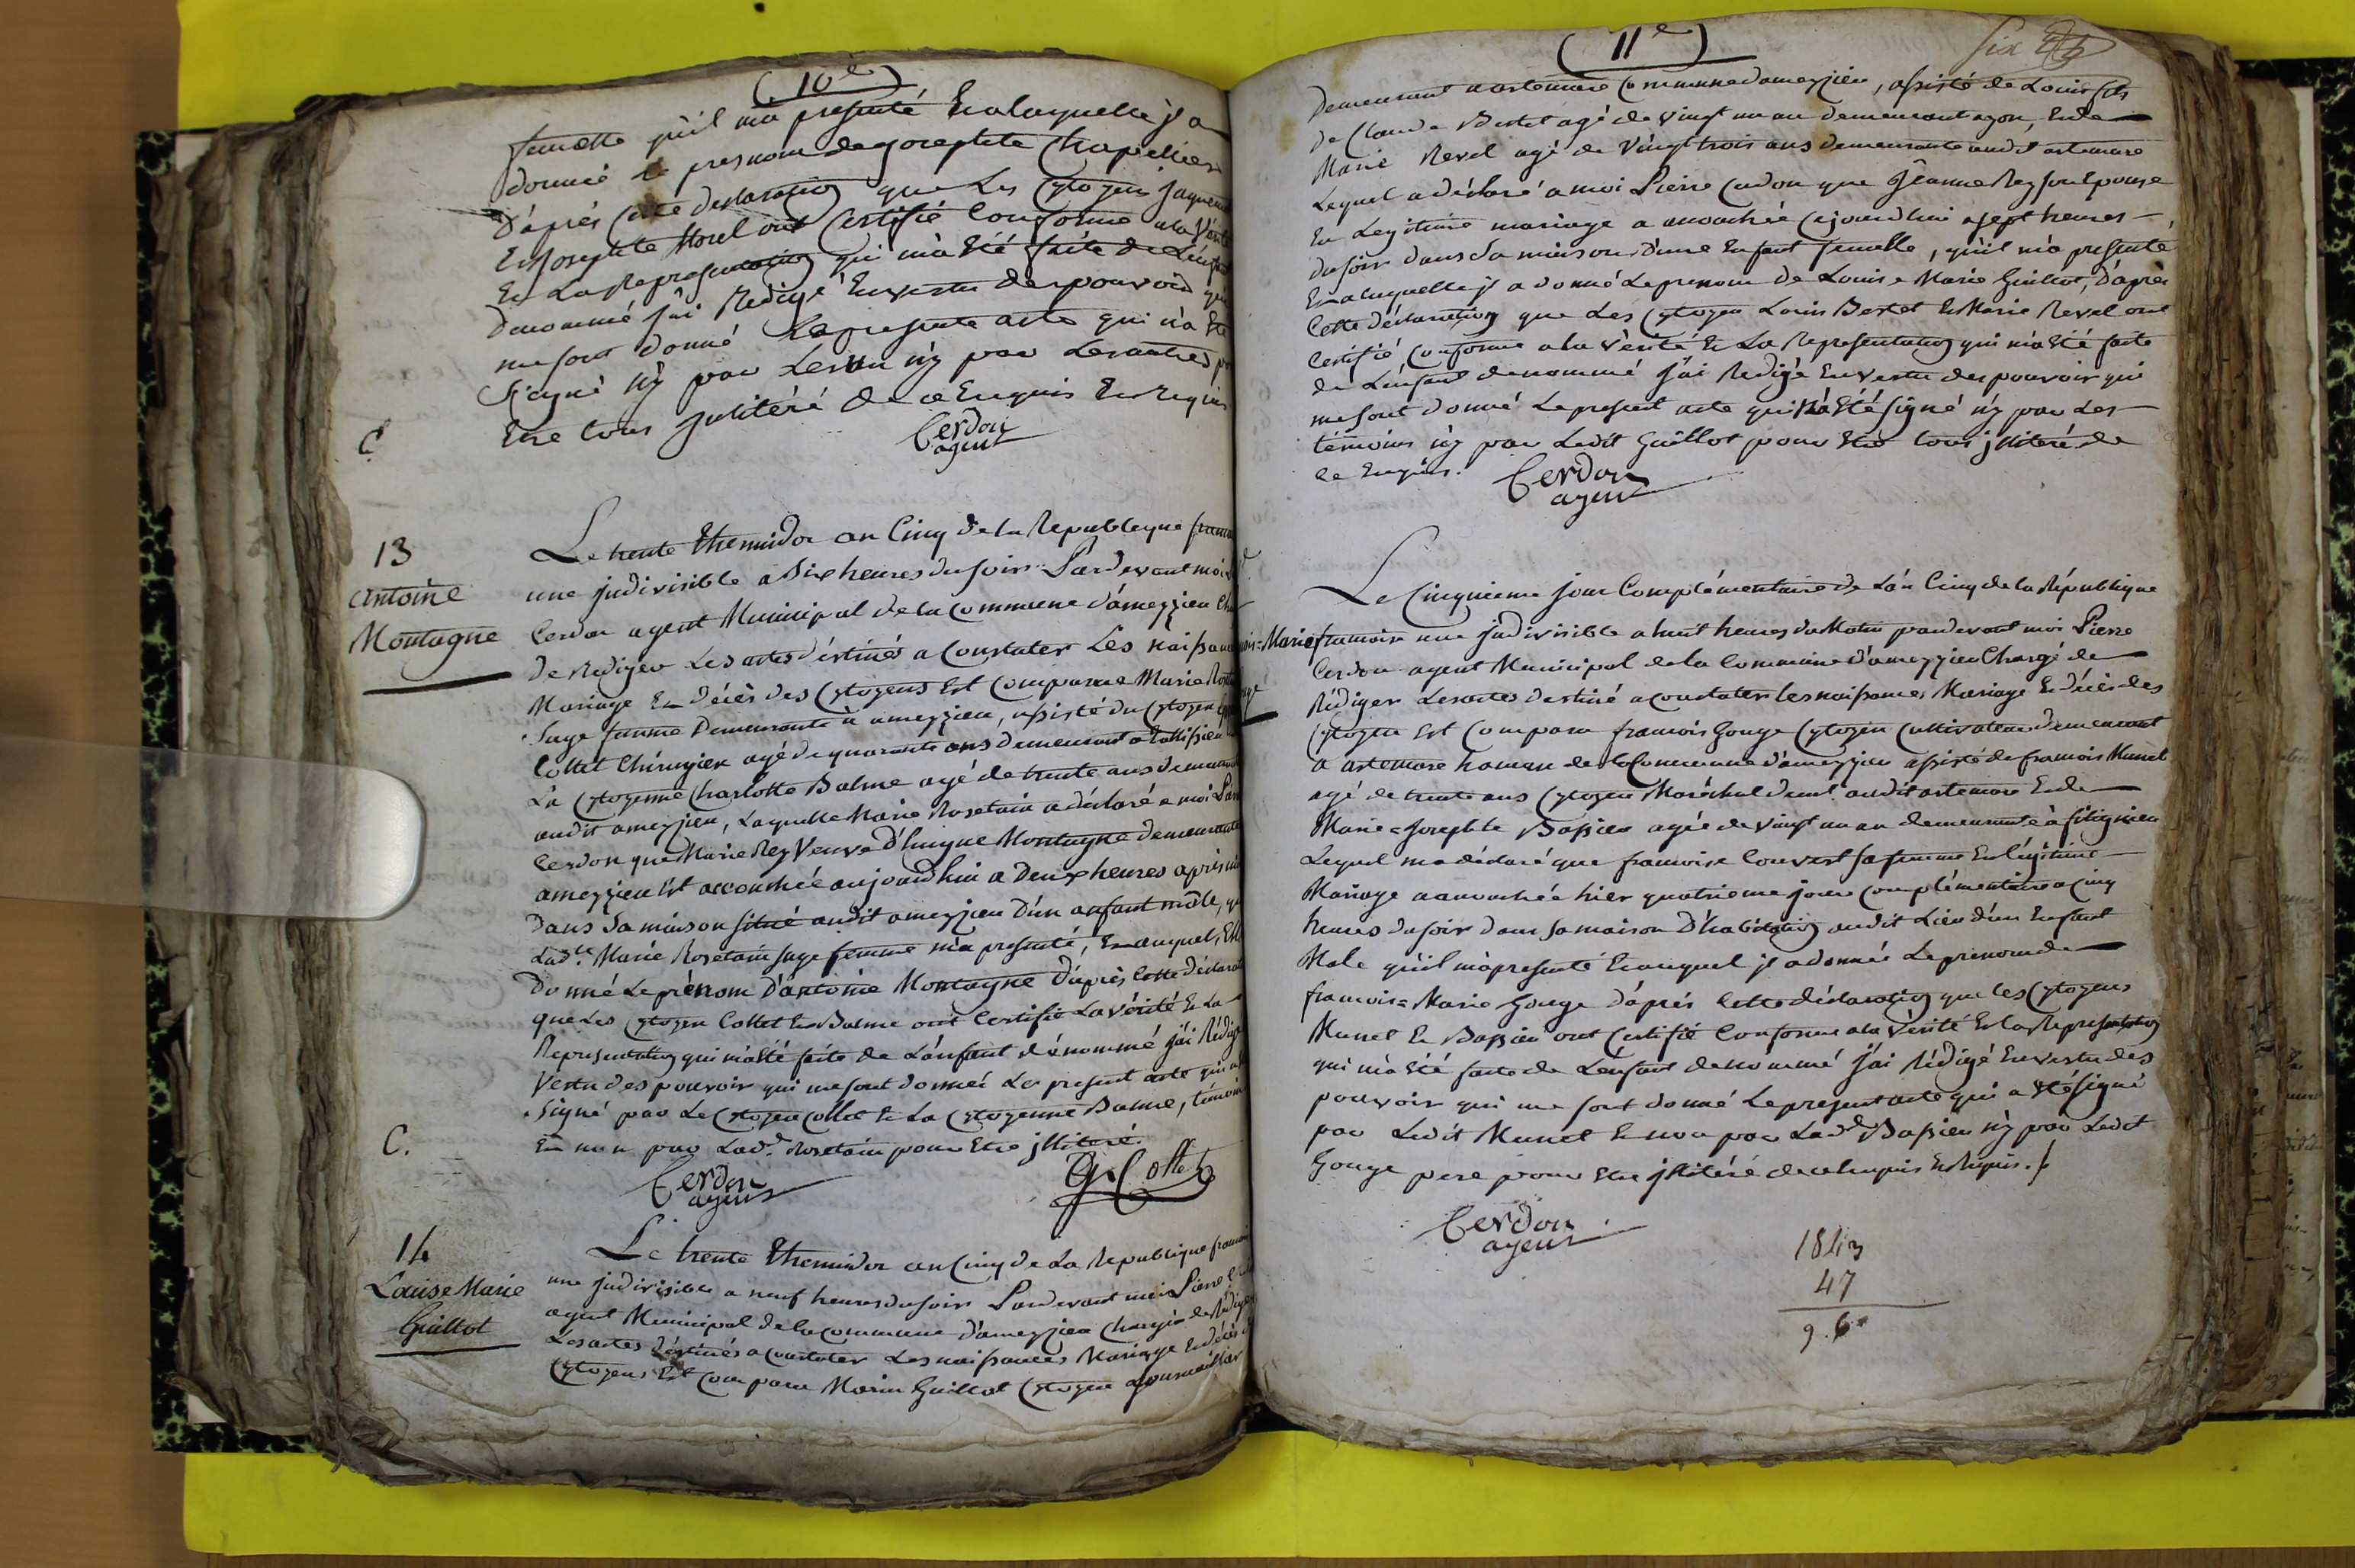 (10e)
femelle qu'il ma presenté Et a laquelle jl a
donné le presnom de josephte Chapelier
D'aprés Cette declaration que Les Cytoyens jaquem
Et Josephte Morel ont Certifié Conforme a la Verité
Et La Representation qui m'a Eté faite de L'enfant
Denommé j'ai Redigé En vertu des pouvoirs qui
me sont donné Le presente acte qui n'a Eté
Signé n'y par Les un n'y par Les autres p
Etre tous jlitéré de ce Enquis
Cerdon
agent
C
13
Antoine
Montagne
Le trente Thermidor an Cinq de la Republique fran
une jndivisible a Six heures du soir Pardevant moi
Cerdon agent Municipal de la Commune d'ameyzieu Ch
de Rediger Les actes déstinés a Constater Les naissances
Mariage Et décès des Cytoyens Est Comparue Marie Ros
Sage femme Demeurante à ameyzieu, assisté du Cytoyen
Collet Chirugien agé de quarante ans demeurant a
La Cytoyenne Charlotte Balme agé de trente ans demeu
audit ameyzieu, Laquelle Marie Rosetain a déclaré a moi
Cerdon que Marie Rey Veuve D' Montagne demeurante
ameyzieu Est accouchée aujourd'hui a Deux heures après mi
dans Sa maison située audit ameyzieu D'un anfant mâle, qu
Lad.te Marie Rosetain sage femme m'a presenté, Et auquel, El
Donné Le prénom D'antoine Montagne D'après Cette Déclara
que Les Cytoyen Collet Et Balme ont Certifié La vérité Et La
Representation qui m'a Eté faite de L'anfant dénommé j'ai Rédigé
Vertu des pouvoir qui me sont donnés Le present acte qui a
Signé par Le Cytoyen Collet Et La Cytoyenne Balme, témoin
Et non par Lad.e Rosetain pour Etre jlliteré.
C.
Cerdon
agent
G. Collet
14
Louise Marie
Guillot
Le trente Thermidor an Cinq de La Republique francai
une jndivisible a neuf heures du soir Pardevant moi Pierre
agent Municipal de la commune d'ameyzieu Chargé de Rédiger
Les actes déstinés a Constater Les naissances Mariage Et décès
Cytoyens Est Comparu Marin Guillot Cytoyen
(11e)
Six
Demeurant a artemare Commune d'ameyzieu, assisté de Louis fils
de Claude Bertet agé de vingt un an demeurant a yon, Et de
Marie Revel agé de Vingt trois ans demeurante audit artemare
Lequel a déclaré a moi Pierre Cerdon que Jeanne Rey son Epouse
En Legitime mariage a accouchée ce jourd'hui a sept heures
du soir dans sa maison d'une Enfant femelle, qu'il m'a presenté
Et a laquelle jl a donné Le prenom de Louise Marie Guillot, d'après
Cette déclaration que Les Cytoyen Louis Bertet Et Marie Revel ont
Certifié Conforme a la Vérité Et La Representation qui m'a Eté faite
de L'enfant denommé j'ai Redigé En vertu des pouvoir qui
me sont donné Le present acte qui n'a Eté signé n'y par Les
témoins n'y par Ledit Guillot pour Etre tous jlliteré de
ce Enquis.
Cerdon
agent
Le Cinquieme jour Complémentaire de L'an Cinq de la République
francoise une jndivisible a huit heures du Matin pardevant moi Pierre
Cerdon agent Municipal de la Commune d'ameyzieu Chargé de
Rédiger Les actes destiné a constater les naissances Mariage Et décès des
Cytoyen Est Comparu francois Gouge Cytoyen Cultivateur demeurant
a artemare hameau de la Commune d'ameyzieu assisté de francois Munet
agé de trente ans Cytoyen Maréchal demt. audit artemare Et de
Marie=Josephte Bassieu agée de vingt un an demeurante à
Lequel m'a déclaré que francoise Convert sa femme En légitime
Mariage a accouchée hier quatrieme jour complémentaire a cinq
heures du soir dans sa maison D'habitation audit Lieu d'un Enfant
Male qu'il m'a presenté Et auquel jl a donné Le prenom de
francois=Marie Gouge D'après Cette déclaration que les Cytoyens
Munet Et Bassieu ont Certifié Conforme a la Vérité Et la Representation
qui m'a Eté faite de L'enfant denommé j'ai Rédigé En vertu des
pouvoir qui me sont donné Le present acte qui a Eté signé
par Ledit Munet Et non par Lad.e Bassieu n'y par Ledit
Gouge pere pour Etre jllitéré de ce Enquis Et Requis.
Marie
Cerdon
agent
1843
47
9.6